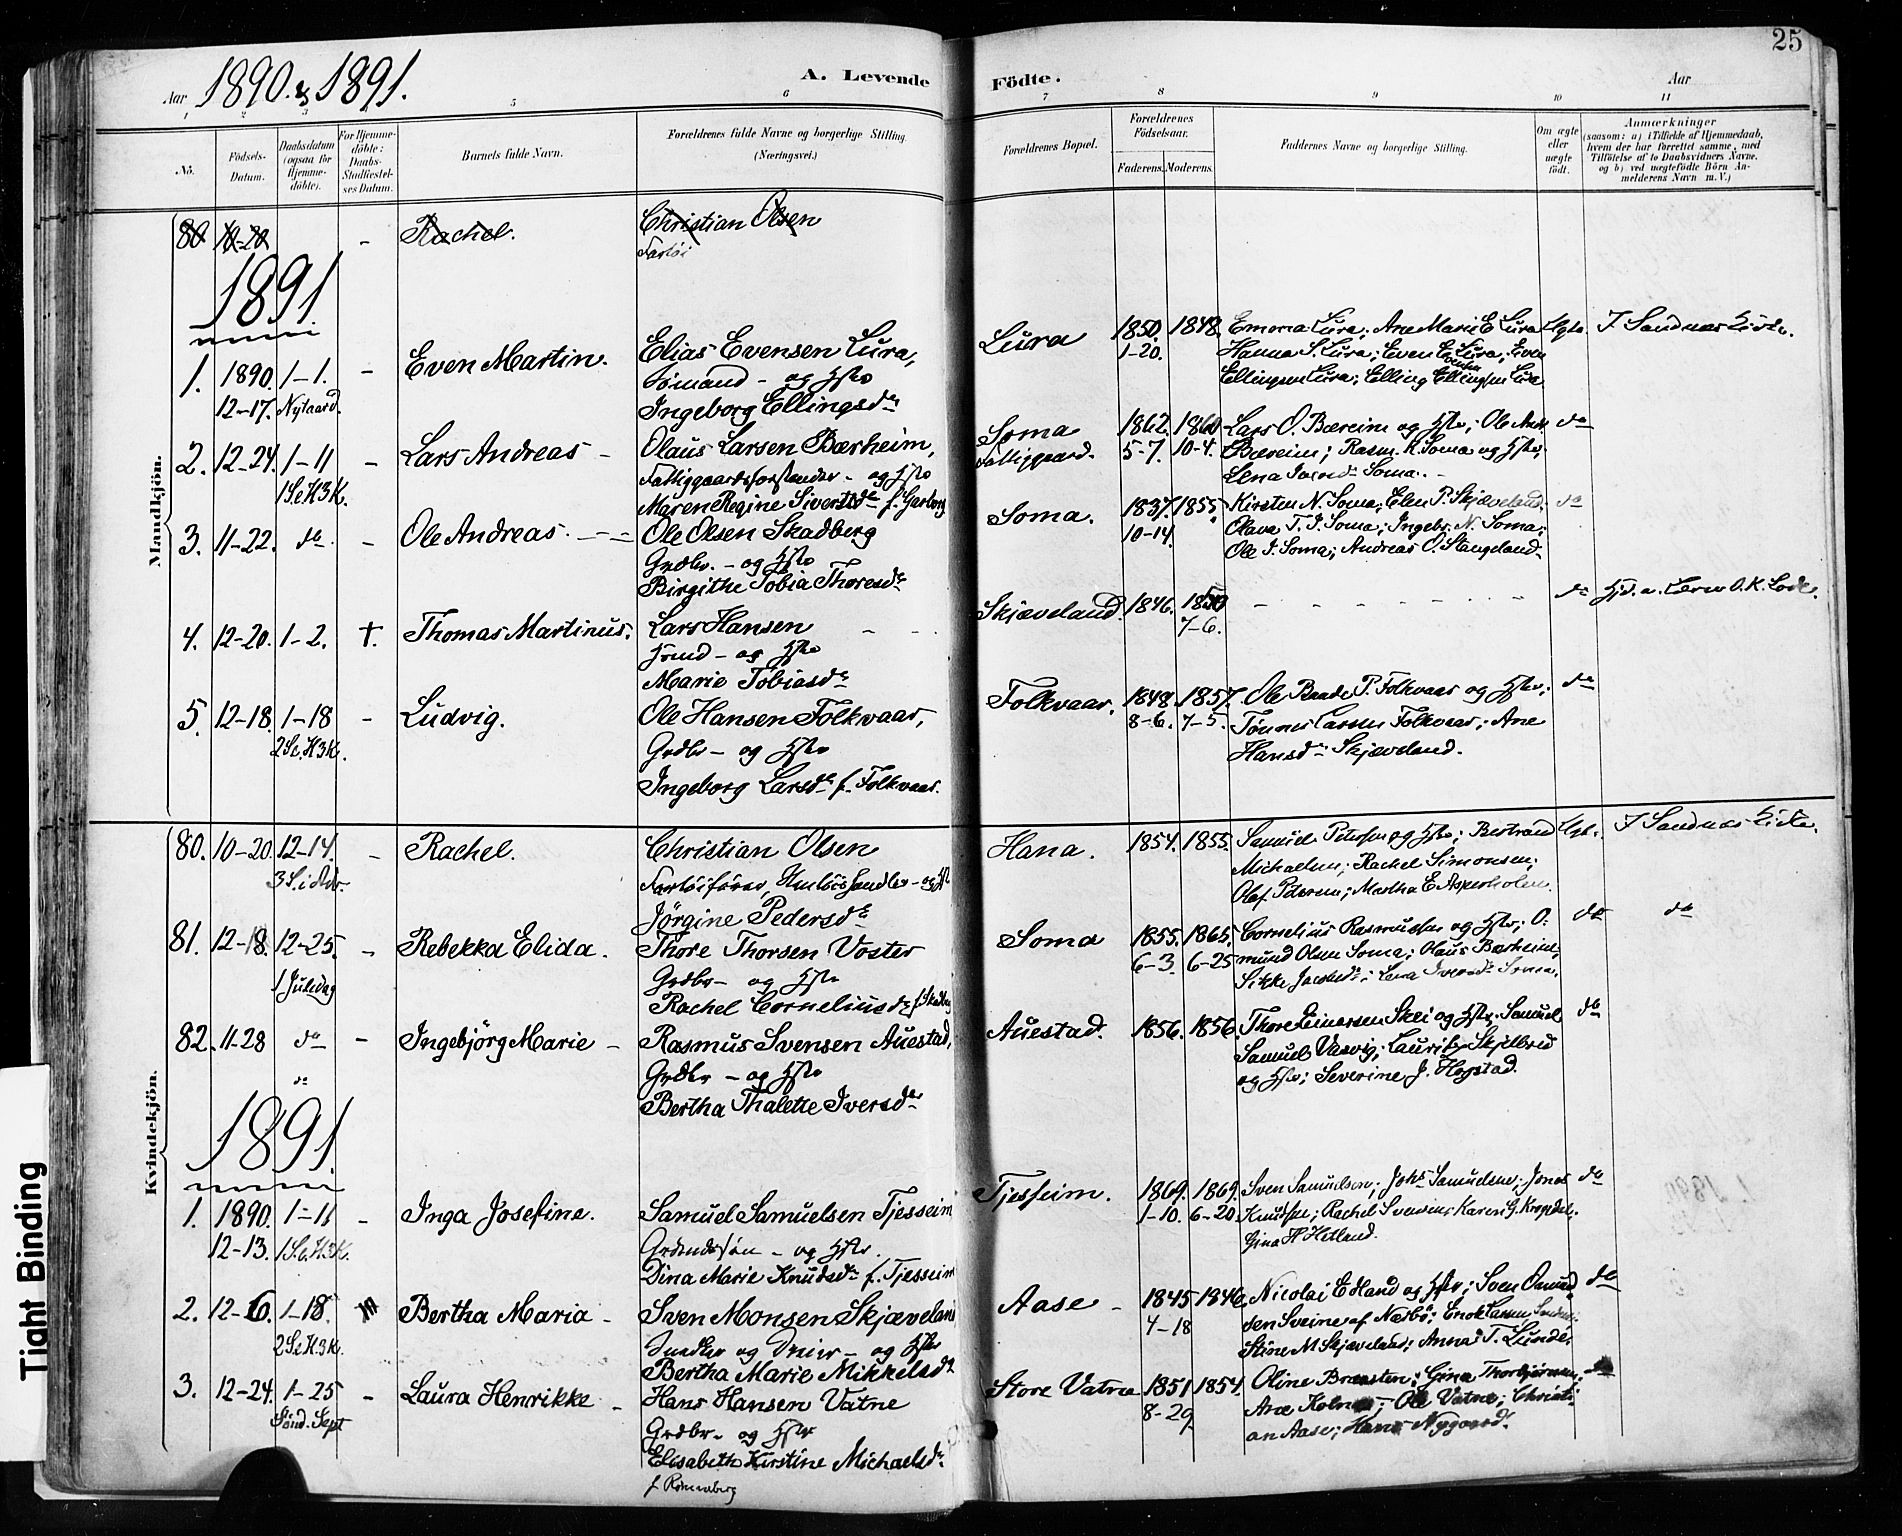 25
Aar 1890 & 1891.
A. Levende Födte.
Aar
1 2 3 4 5 6 7 8 9 10 11
No.
Födsels-Datum.
Daabsdatum (ogsaa for Hjemme-döbte).
For Hjemme-döbte: Daabs-Stadfæstel-ses Datum.
Barnets fulde Navn.
Forældrenes fulde Navne og borgerlige Stilling. (Næringsvei.)
Forældrenes Bopæl.
Forældrenes Födselsaar.
Faderens. Moderens.
Faddernes Navne og borgerlige Stilling.
Om ægte eller uægte födt.
Anmærkninger
(saasom: a) i Tilfælde af Hjemmedaab, hvem der har forrettet samme, med Tilföielse af to Daabsvidners Navne, og b) ved uægtefödte Börn An-melderens Navn m. V.)
Mandkjön.
80 10-20 - Rachel. Christian Olsen
1891
1. 1890. 12-17. 1-1. Nytaard. - Even Martin. Elias Evensen Lura,
Sömand - og Hstr
Ingeborg Ellingsdr
Lura 1850. 1-20. 1848
Emma Lura; Ane Marie E Lura
Hanna S. Lura; Even E Lura; Even
Ellingsen Lura; Elling Ellingsen Lura
I Sandnæs Kirke.
2. 12-24. 1-11 1S.e.H3K. - Lars Andreas - Olaus Larsen Bærheim,
Fattiggaardsforstander - og Hstr
Maren Regine Sivertsdr f. Garborg
Soma Fattiggaard. 1862. 5-7. 1860 10-4.
Lars O. Bæreim og Hstr; Ole Andr.
Bæreim; Rasm. K. Soma og Hstr;
Lena Soma. -
do
3. 11-22. do - Ole Andreas. - Ole Olsen Skadberg
Grdbr. - og Hstr
Birgithe Tobia Thoresdr
Soma. 1837. 10-14. 1855
Kirsten N. Soma; Elen P. Skjæveland;
Olava T. I. Soma; Ingebr. N. Soma;
Ole I. Soma; Andreas O. Stangeland.
do
4. 12-20. 1-2. †. Thomas Martinus. Lars Hansen
Hsmd - og Hstr
Marie Tobiasdr
Skjæveland. 1846. 1850 7-6.
do Hjd. a. Lærer O. K.
5. 12-18. 1-18 2S.e.H3K. - Ludvig. Ole Hansen Folkvaar,
Grdbr - og Hstr
Ingeborg Larsdr f. Folkvaar.
Folkvaar. 1848. 8-6. 1857. 7-5.
Ole Baade P. Folkvaar og Hstr;
Tönnes Larsen Folkvaar; Ane
Hansdr Skjæveland.
do
Kvindekjön.
80. 10-20. 12-14. 3S.i Adv. - Rachel. Christian Olsen
Fartöiförer, - og Hstr
Jørgine Pedersdr
Hana. 1854. 1855.
Samuel Petersen og Hstr; Bertrand
Michaelsen; Rachel Simonsen;
Olaf Petersen; Martha E Asperholen.
I Sandnæs Kirke.
81. 12-18. 12-25. 1 Juledag - Rebekka Elida. Thore Thorsen Voster
Grdbr - og Hstr
Rachel Corneliusdr f. Skadberg
Soma 1855. 6-3. 1865. 6-25
Cornelius Rasmussen og Hstr; O.
mund Olsen Soma; Olaus Bærheim;
Sikke Jacobsdr; Lena Iversdr Soma.
do do
82. 11-28 do - Ingebjörg Marie - Rasmus Svensen Auestad,
Grdbr - og Hstr
Bertha Thalette Iversdr
Auestad. 1856. 1856.
Thore Einersen Skei og Hstr; Samuel
Samuels. Vasvig; Laurits Skjelbred
og Hstr; Severine J. Høgstad.
do
1891.
1. 1890. 12-13. 1-11 1S.e.H3K. - Inga Josefine. Samuel Samuelsen Tjesseim
- og Hstr.
Dina Marie Knudsdr f. Tjesseim
Tjesseim. 1869. 1-10. 1869. 6-20.
Sven Samuelsen; Johs Samuelsen; Jonas
Knudsen; Rachel Svensen; Karen G.
Gina H Hetland.
do
2. 12-6. 1-18. 2S.e.H.3K. Bertha Maria - Sven Monsen Skjæveland
- og Hstr
Bertha Marie Mikkelsdr
Aase - 1845 4-18 1846.
Nicolai Edland og Hstr; Sven
Sveine af Nærbö; Enok Larsen
Stine M Skjæveland; Anna T. Lunde.
do
3. 12-24. 1-25 Sönd. Sept - Laura Henrikke - Hans Hansen Vatne
Grdbr - og Hstr
Elisabeth Kirstine Michaelsdr
Store Vatne 1851 8-29 1854.
Oline Braasten; Gina Thorbjørnsen;
Ane Ole Vatne; Christi-
an Aase; Hans Nygaard.
Tight Binding